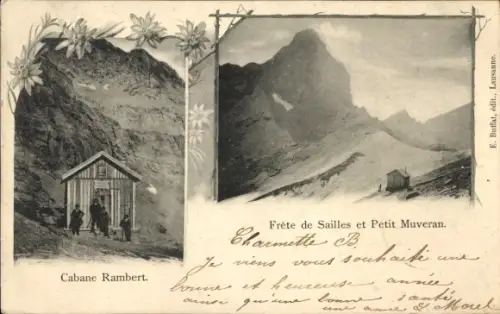 E. Buffat, édit., Lausanne.
Frète de Sailles et Petit Muveran.
Cabane Rambert.
Charmette B.
Je viens vous souhaité une
bonne et heureuse année
ainsi qu'une bonne santé
une amie E Morel